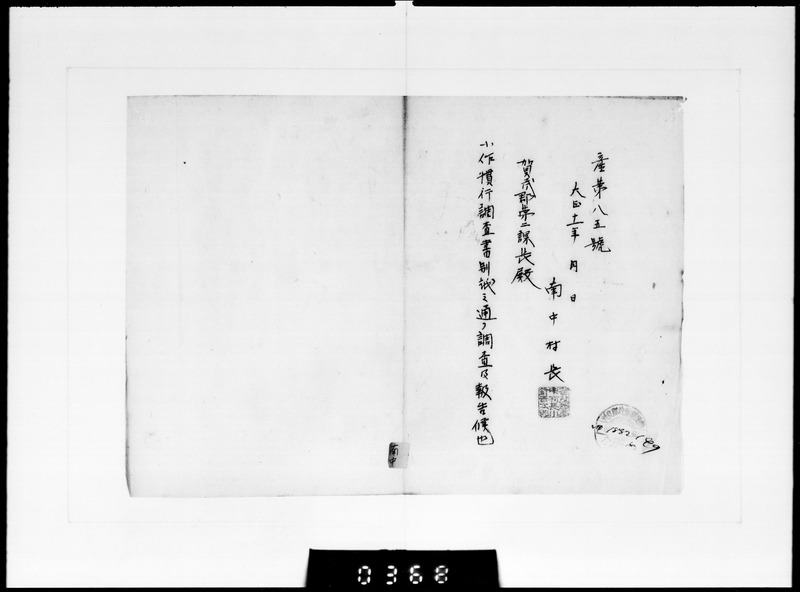 産第八五號
大正十一年 月 日
南中村長
賀茂郡第二課長殿
小作慣行調査書別紙之通リ調査及報告候也
南中
0368